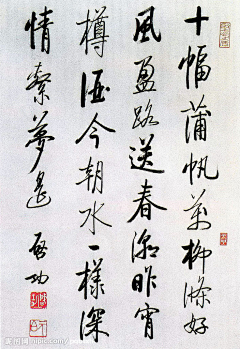 十幅蒲帆萬柳條好
風盈路送春潮昨宵
樽酒今朝水一樣深
情繫夢遥
啟功